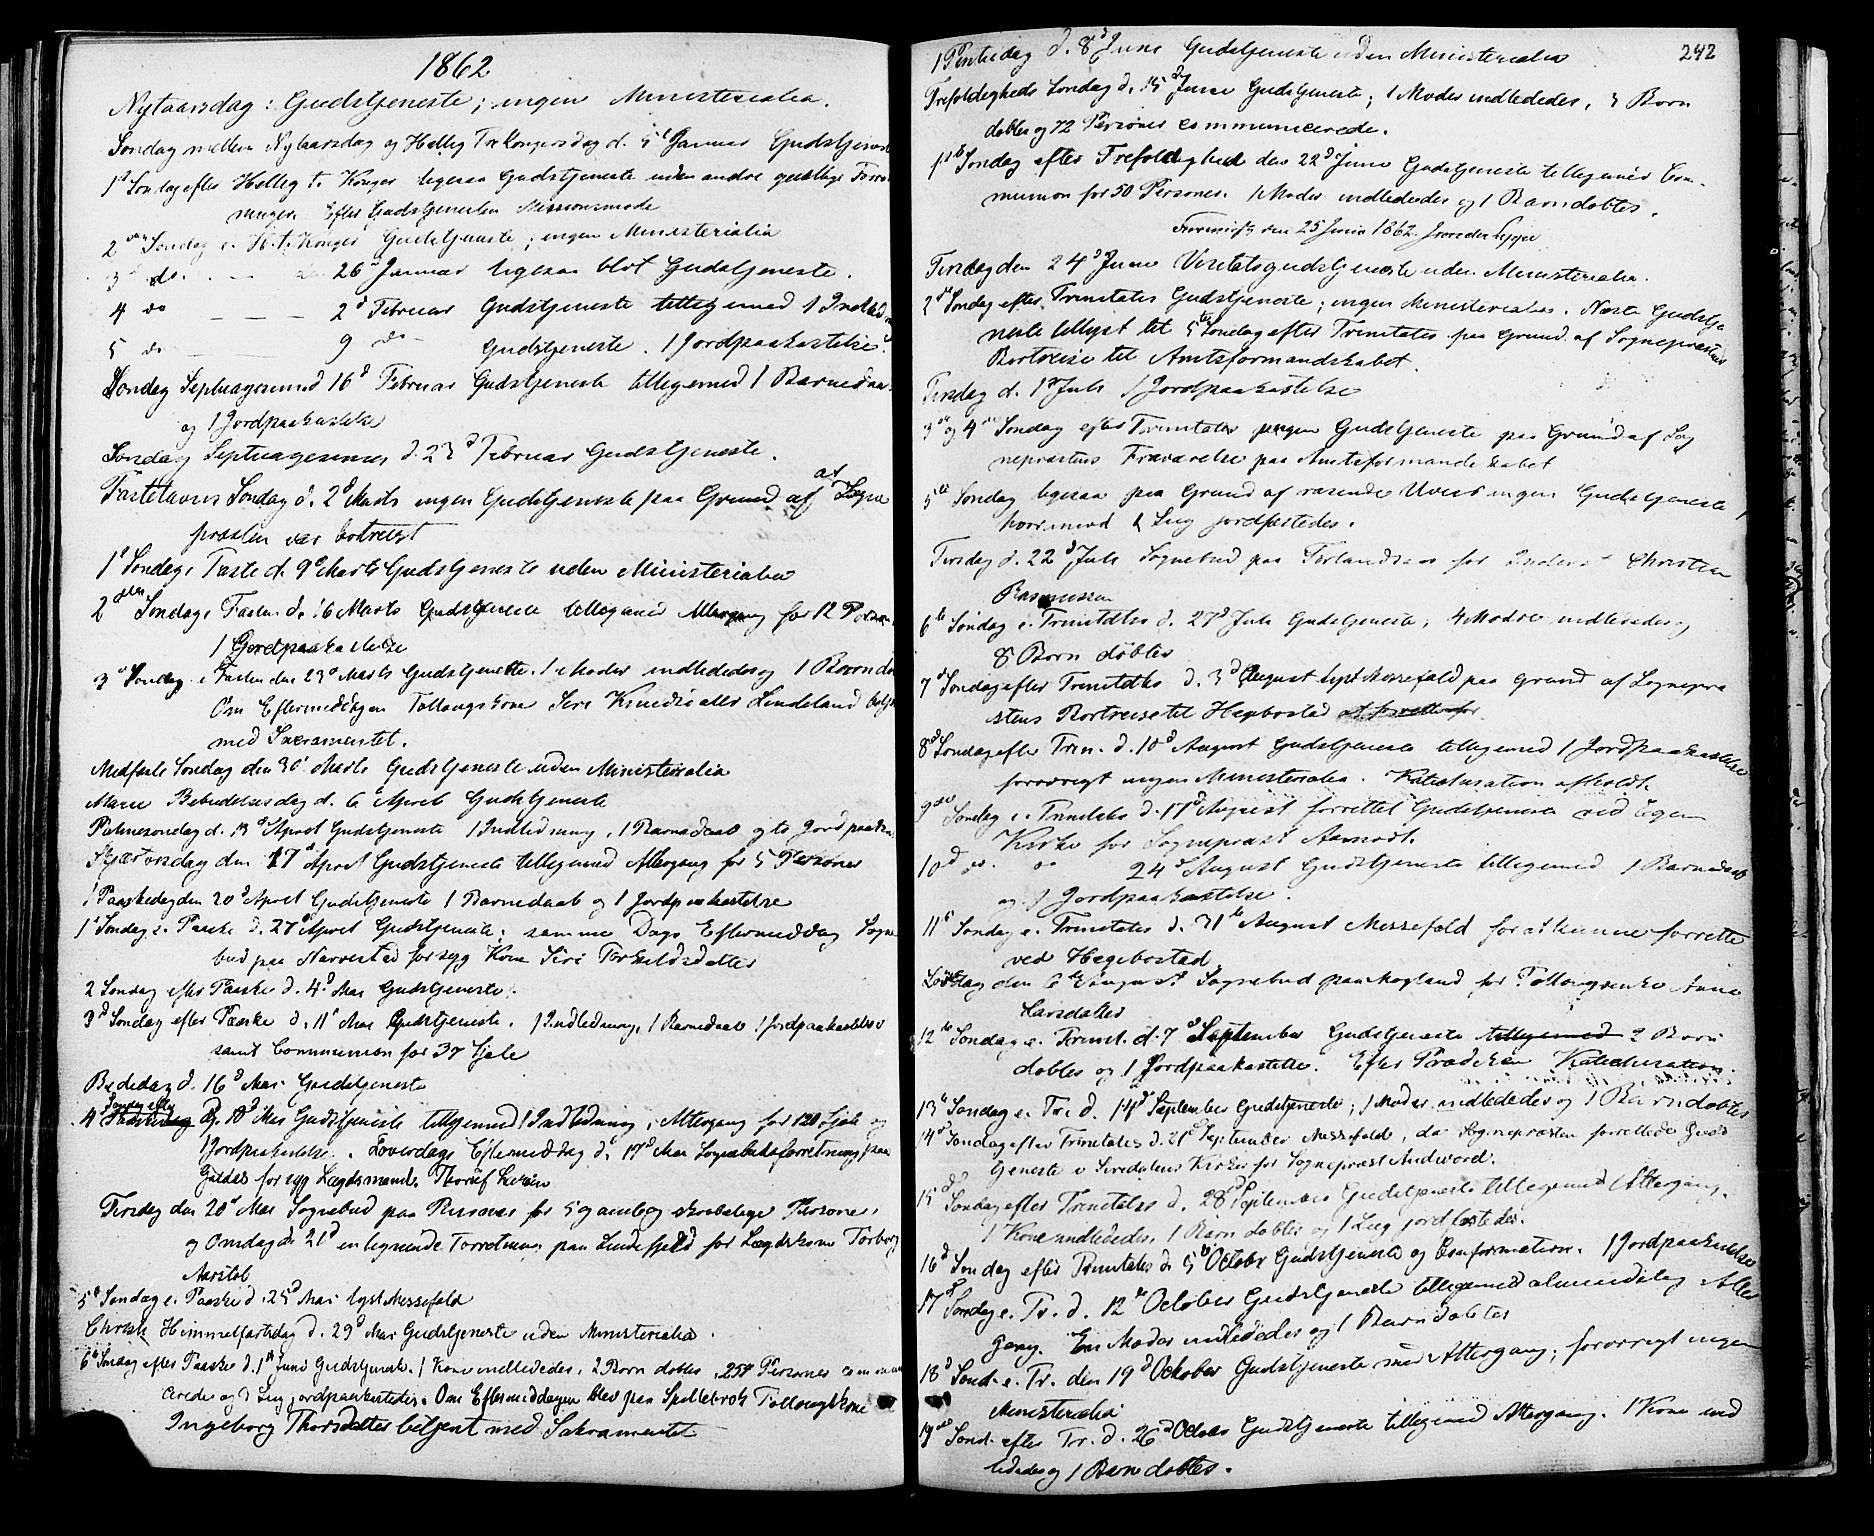 1862
Nytaarsdag: Gudstjeneste; ingen Ministerialia.
Søndag mellem Nytaarsdag og Hellig Trekongersdag d. 5t Januar Gudstjeneste
1s Søndag efter Hellig t. Konger ligesaa Gudstjeneste uden andre geistlige Forret-
ninger. Efter Gudstjenesten Missionsmøde
2den Søndag e. H. t. Konger Gudstjeneste; ingen Ministerialia
3d do. 26d Januar ligesaa blot Gudstjeneste.
4 do 2d Februar Gudstjeneste tilligemed 1 Indledn
5 do 9 do Gudstjeneste. 1 Jordpaakastelse.
Søndag Septuagesima d 16d Februar Gudstjeneste tilligemed 1 Barnedaab
og 1 Jordpaakastelse
Søndag d. 23d Februar Gudstjeneste.
Fastelavns Søndag d. 2d Marts ingen Gudstjeneste paa Grund af at Sogne
præsten var bortreist
1s Søndag i Faste d. 9d Marts Gudstjeneste uden Ministerialia
2den Søndag i Fasten d. 16 Marts Gudstjeneste tilligemed Altergang for 12 Person
1 Jordpaakastelse
3d Søndag i Fasten den 23d Marts Gudstjeneste. 1 Moder indlededes og 1 Barn dø
Om Eftermiddagen Siri Lindeland betj
med Sacramentet.
Midfaste Søndag den 30d Marts Gudstjeneste uden Ministerialia
Marie Bebudelsesdag d. 6 April Gudstjeneste
Palmesøndag d. 13d April Gudstjeneste 1 Indledning, 1 Barnedaab og to Jordpaakas
Skjærtorsdag den 17d April Gudstjeneste tilligemed Altergang for 5 Personer
1 Paaskedag den 20d April Gudstjeneste 1 Barnedaab og 1 Jordpaakastelse
1s Søndag e. Paaske d. 27d April Gudstjeneste; samme Dags Eftermiddag Sogne
bud paa Narvestad for syg Kone Siri Torkildsdatter
2 Søndag efter Paaske d. 4d Mai Gudstjeneste.
3d Søndag efter Paaske d. 11t Mai Gudstjeneste. 1 Indledning, 1 Barnedaab 1 Jordpaakastelse
samt Communion for 37 Sjæle
Bededag d. 16d Mai Gudstjeneste
4 Søndag efter d. 18d Mai Gudstjeneste tilligemed 1 Indledning, Altergang for 120 Sjæle og
1 Jordpaakastelse. Løverdags Eftermiddag d. 17d Mai Sognebudsforretning paa
for syg Lægdsmand
Tirsdag den 20d Mai Sognebud paa for 5 gamle og skrøbelige Personer,
og Onsdag d. 21d en lignende Forretning paa Lindefjeld for Lægdskone Torborg
Aarstøl
5t Søndag e. Paaske d. 25d Mai lyst Messefald
Christi Himmelfartsdag d. 29d Mai Gudstjeneste uden Ministerialia.
6t Søndag efter Paaske d. 1st Juni Gudstjeneste. 1 Kone indlededes, 2 Børn døbtes, Personer commun
cerede og 3 Liig jordpaakastedes. Om Eftermiddagen blev paa
Ingeborg Thorsdatter betjent med Sakramentet
242
1 Pintsedag d. 8d Juni Gudstjeneste uden Ministerialia
Trefoldigheds Søndag d. 15d Juni Gudstjeneste; 1 Moder indlededes, 3 Børn
døbtes og 72 Personer communicerede.
1ste Søndag efter Trefoldighed den 22d Juni Gudstjeneste tilligemed Com-
munion for 50 Personer. 1 Moder indlededes og 1 Barn døbtes.
den 25 Juni 1862.
Tirsdag den 24d Juni Visitatsgudstjeneste uden Ministerialia.
2den Søndag efter Trinitatis Gudstjeneste; ingen Ministerialia. Næste Gudstje
neste tillyst til 5te Søndag efter Trinitatis paa Grund af Sognepræstens
Bortreise til Amtsformandskabet.
Tirsdag d. 1s Juli 1 Jordpaakastelse
3die og 4de Søndag efter Trinitatis ingen Gudstjeneste paa Grund af Sog
nepræstens Fraværelse paa Amtsformandskabet
5te Søndag ligesaa paa Grund af rasende Uveir ingen Gudstjeneste,
hvorimod 2 Liig jordfæstedes.
Tirsdag d. 22d Juli Sognebud paa for Christian
Rasmussen
6te Søndag e. Trinitatis d. 27d Juli Gudstjeneste, 4 Mødre indlededes og
8 Børn døbtes
7d Søndag efter Trinitatis d. 3d August lyst Messefald paa Grund af Sognepræ
stens Bortreise til Hegbostad
8d Søndag efter Trin. d. 10d August Gudstjeneste tilligemed 1 Jordpaakastelse
forøvrigt ingen Ministerialia. Katechisation afholdt.
9de Søndag e. Trinitatis d. 17d August forrettet Gudstjeneste ved
Kirke for Sognepræst Aamodt.
10d do do 24d August Gudstjeneste tilligemed 1 Barnedaab
og 1 Jordpaakastelse.
11t Søndag e. Trinitatis d. 31te August Messefald for at kunne forrette
ved Hegebostad
Løverdag den 6te August Sognebud paa Hogland for Anne
Larsdatter
12te Søndag e. Trinit. d. 7d September Gudstjeneste tilligemed 2 Børn
døbtes og 1 Jordpaakastelse. Efter Prædiken Katechisation
13t Søndag e. Tr. d. 14d September Gudstjeneste; 1 Moder indlededes og 1 Barn døbtes
14d Søndag efter Trinitatis d. 21d September Messefald, da Sognepræsten forrettede Guds
tjeneste i Siredalens Kirke for Sognepræst
15d Søndag efter Trinitatis d. 28d September Gudstjeneste tilligemed Altergang.
1 Kone indlededes, 1 Barn døbtes og 1 Liig jordfæstedes.
16d Søndag efter Trinitatis d. 5te October Gudstjeneste og Confirmation. 1 Jordpaakastelse
17d Søndag e. Tr. d. 12te October Gudstjeneste tilligemed almindelig Alter
gang. En Moder indlededes og 1 Barn døbtes
18d Sønd. e. Tr. den 19d October Gudstjeneste med Altergang; forøvrigt ingen
Ministerialia
19de Sønd. efter Tr. d. 26d October Gudstjeneste tilligemed Altergang. 1 Kone ind
lededes og 1 Barn døbtes.